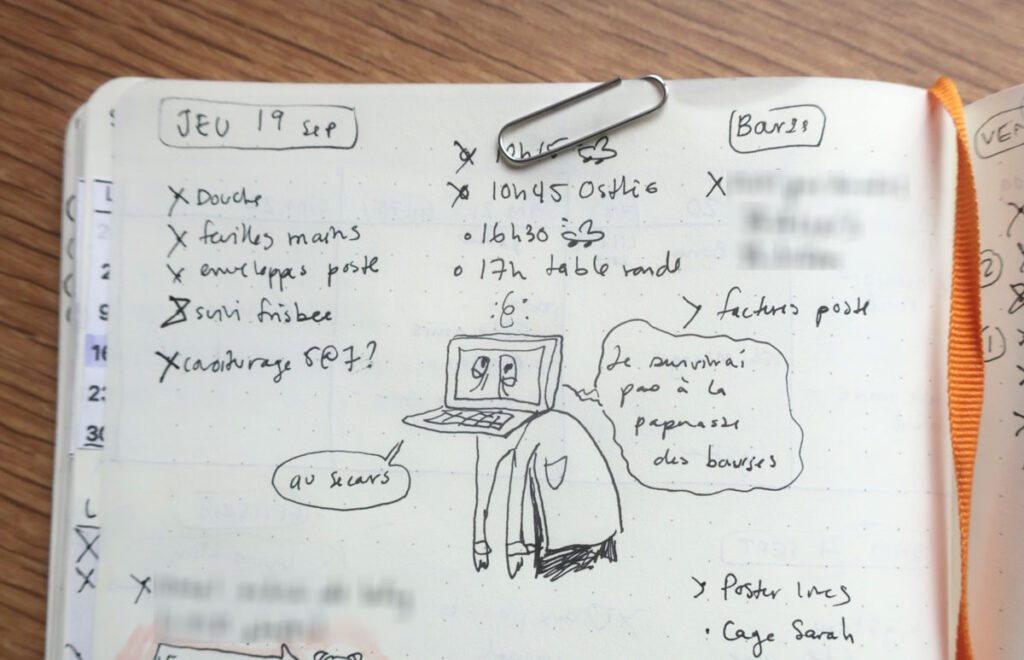 JEU 19 sep
X Douche
X feuilles mains
X enveloppes poste
X suivi frisbee
X covoiturage 5@7?
10h45 Osthéo
• 16h30
• 17h table ronde
Bourses
> factures poste
Je survivrai
pas à la
paperasse
des bourses
au secours
> Poster Ines
• Cage Sarah
VEN
L
2
9
16
23
30
L
2
1